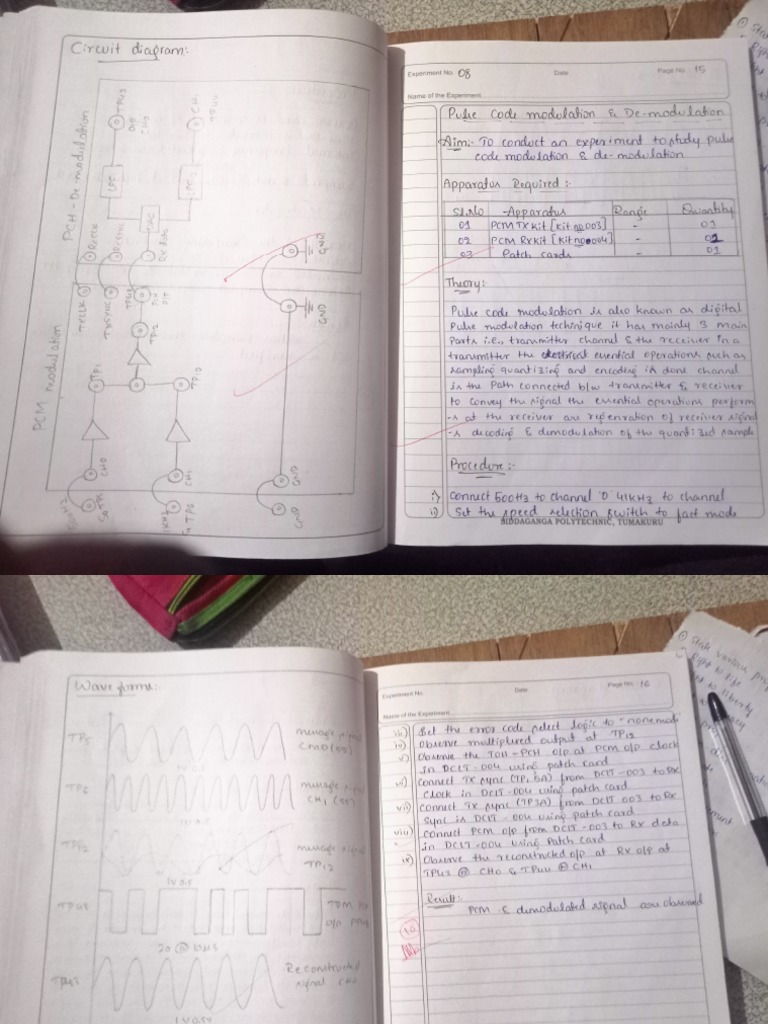 Circuit diagram:
PCM modulation
PCM - De modulation
CH0
TP1
TP10
CH1
TP12
TXCLK
TXSYNC
RXCLK
RXSYNC
Rx data
LPF
LPF
GND
GND
GND
GND
500Hz
1KHz
Experiment No. 08
Date
Page No. 15
Name of the Experiment
Pulse Code modulation & De-modulation
Aim:- To conduct an experiment to study pulse
code modulation & de-modulation
Apparatus Required :-
Sl.No Apparatus Range Quantity
01 PCM TX Kit [Kit no 003] - 01
02 PCM RX Kit [Kit no 004] - 01
03 Patch cards - 01
Theory:-
Pulse code modulation is also known as digital
Pulse modulation technique it has mainly 3 main
Parts i.e., transmitter channel & the receiver In a
transmitter the essential operations such as
sampling quantizing and encoding is done channel
is the Path connected b/w transmitter & receiver
to convey the signal the essential operations perform
-s at the receiver are regenration of receiver signal
-s decoding & demodulation of the quantized sample
Procedure:-
i) Connect 500Hz to channel '0' 41KHz to channel
ii) Set the speed selection switch to fast mode
SIDDAGANGA POLYTECHNIC, TUMAKURU
① State various
② Right to life
to liberty
Wave forms:
TP5
message signal
TP6
message signal
CH1
1V 0.5
TP12
message signal
TP12
1V 0.5
TP44
TDM
O/P
TP43
Reconstructed
signal CH0
1V 0.5V
Experiment No.
Date
Page No. 16
Name of the Experiment
iii) Set the error code select logic to "none mode"
iv) Observe multiplexed output at TP12
v) Observe the TDM-PCM o/p at PCM o/p clock
in DCLT-004 using patch card
vi) Connect TX sync (TP1 6A) from DCLT-003 to RX
clock in DCLT-004 using patch card
vii) Connect TX sync (TP3A) from DCLT 003 to Rx
Sync in DCLT-004 using patch card
viii) Connect PCM o/p from DCLT-003 to Rx data
in DCLT-004 Using Patch card
ix) Observe the reconstructed o/p at Rx o/p at
TP43 @ CH0 & TP44 @ CH1
Result:
PCM & demodulated signal are observed
10